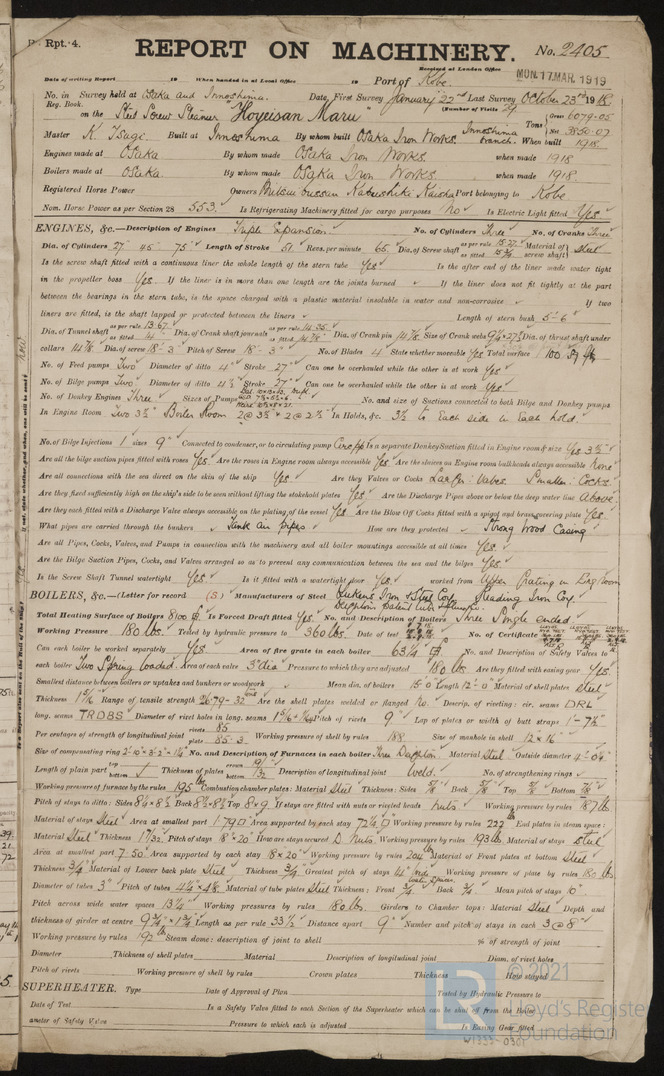 Rpt. 4.
REPORT ON MACHINERY. No. 2405
Received at London Office
Date of writing Report 19 When handed in at Local Office 19 Port of Kobe MON. 17 MAR. 1919
No. in Survey held at Osaka and Innoshima. Date, First Survey January 22nd Last Survey October 23rd 1918
Reg. Book. (Number of Visits
on the Steel Screw Steamer "Hoyeisan Maru" Tons Gross 6079.05 Net 3850.07
Master K. Tsuge. Built at Innoshima By whom built Osaka Iron Works. Innoshima branch. When built 1918
Engines made at Osaka By whom made Osaka Iron Works. when made 1918
Boilers made at Osaka By whom made Osaka Iron Works. when made 1918.
Registered Horse Power Owners Mitsui Bussan Kabushiki Kaisha Port belonging to Kobe
Nom. Horse Power as per Section 28 553. Is Refrigerating Machinery fitted for cargo purposes No Is Electric Light fitted Yes
ENGINES, &c.—Description of Engines Triple Expansion. No. of Cylinders Three No. of Cranks Three
Dia. of Cylinders 27" 45" 75" Length of Stroke 51 Revs. per minute 65. Dia. of Screw shaft as per rule 15.27 as fitted Material of screw shaft Steel
Is the screw shaft fitted with a continuous liner the whole length of the stern tube Yes Is the after end of the liner made water tight
in the propeller boss Yes. If the liner is in more than one length are the joints burned If the liner does not fit tightly at the part
between the bearings in the stern tube, is the space charged with a plastic material insoluble in water and non-corrosive If two
liners are fitted, is the shaft lapped or protected between the liners Length of stern bush 5'-6"
Dia. of Tunnel shaft as per rule 13.67 as fitted Dia. of Crank shaft journals as per rule 14.35 as fitted 14 7/8 Dia. of Crank pin 14 7/8 Size of Crank webs Dia. of thrust shaft under
collars 14 7/8 Dia. of screw 18'-3" Pitch of Screw 18'-3" No. of Blades 4 State whether moveable Yes Total surface 100
No. of Feed pumps Two Diameter of ditto 4" Stroke 27" Can one be overhauled while the other is at work Yes
No. of Bilge pumps Two Diameter of ditto 4½" Stroke 27" Can one be overhauled while the other is at work Yes
No. of Donkey Engines Three Sizes of Pumps No. and size of Suctions connected to both Bilge and Donkey pumps
In Engine Room Two 3½" Boiler Room 2 @ 3½" & 2 @ 2½" In Holds, &c. 3½ to Each side in Each hold.
No. of Bilge Injections 1 sizes 9" Connected to condenser, or to circulating pump Is a separate Donkey Suction fitted in Engine room & size Yes 3½"
Are all the bilge suction pipes fitted with roses Yes. Are the roses in Engine room always accessible Yes Are the sluices on Engine room bulkheads always accessible None
Are all connections with the sea direct on the skin of the ship Yes Are they Valves or Cocks Larger: Valves. Smaller: Cocks
Are they fixed sufficiently high on the ship's side to be seen without lifting the stokehold plates Yes Are the Discharge Pipes above or below the deep water line Above
Are they each fitted with a Discharge Valve always accessible on the plating of the vessel Yes Are the Blow Off Cocks fitted with a spigot and brass covering plate Yes.
What pipes are carried through the bunkers Tank Air pipes How are they protected Strong Wood Casing
Are all Pipes, Cocks, Valves, and Pumps in connection with the machinery and all boiler mountings accessible at all times Yes.
Are the Bilge Suction Pipes, Cocks, and Valves arranged so as to prevent any communication between the sea and the bilges Yes.
Is the Screw Shaft Tunnel watertight Yes. Is it fitted with a watertight door Yes. worked from Upper Grating in Eng. room
BOILERS, &c.—(Letter for record (S.) Manufacturers of Steel Lukens Iron & Steel Coy. Reading Iron Coy.
Total Heating Surface of Boilers 8100 Is Forced Draft fitted Yes. No. and Description of Boilers Three Single ended.
Working Pressure 180 lbs. Tested by hydraulic pressure to 360 lbs. Date of test No. of Certificate
Can each boiler be worked separately Yes. Area of fire grate in each boiler 63¼ No. and Description of Safety Valves to
each boiler Two Spring loaded. Area of each valve 3" dia Pressure to which they are adjusted 180 lbs Are they fitted with easing gear Yes.
Smallest distance between boilers or uptakes and bunkers or woodwork Mean dia. of boilers 15'-0" Length 12'-0" Material of shell plates Steel
Thickness Range of tensile strength 26.79-32 Are the shell plates welded or flanged No. Descrip. of riveting: cir. seams DRL
long. seams TRDBS Diameter of rivet holes in long. seams Pitch of rivets 9" Lap of plates or width of butt straps 1'-7½"
Per centages of strength of longitudinal joint rivets 85 plate 85.3 Working pressure of shell by rules 188 Size of manhole in shell 12 x 16"
Size of compensating ring No. and Description of Furnaces in each boiler Three Deighton. Material Steel Outside diameter
Length of plain part top bottom Thickness of plates crown bottom Description of longitudinal joint Weld. No. of strengthening rings
Working pressure of furnace by the rules 195 lbs Combustion chamber plates: Material Steel Thickness: Sides 5/8 Back 5/8 Top 5/8 Bottom
Pitch of stays to ditto: Sides Back Top 8x9 If stays are fitted with nuts or riveted heads Nuts Working pressure by rules 187 lbs
Material of stays Steel Area at smallest part 1.79 Area supported by each stay 72¼ Working pressure by rules 227 End plates in steam space:
Material Steel Thickness 1 1/32 Pitch of stays 18"x20" How are stays secured D. Nuts. Working pressure by rules 193 lbs Material of stays Steel
Area at smallest part 7.50 Area supported by each stay 18 x 20" Working pressure by rules 204 Material of Front plates at bottom Steel
Thickness Material of Lower back plate Steel Thickness Greatest pitch of stays Working pressure of plate by rules 180 lbs
Diameter of tubes 3" Pitch of tubes Material of tube plates Steel Thickness: Front Back Mean pitch of stays 10"
Pitch across wide water spaces 13¼ Working pressures by rules 180 lbs. Girders to Chamber tops: Material Steel Depth and
thickness of girder at centre Length as per rule 33½ Distance apart 9" Number and pitch of stays in each 3 @ 8"
Working pressure by rules 192 lbs Steam dome: description of joint to shell % of strength of joint
Diameter Thickness of shell plates Material Description of longitudinal joint Diam. of rivet holes
Pitch of rivets Working pressure of shell by rules Crown plates Thickness How stayed
SUPERHEATER. Type Date of Approval of Plan Tested by Hydraulic Pressure to
Date of Test Is a Safety Valve fitted to each Section of the Superheater which can be shut off from the Boiler
ameter of Safety Valve Pressure to which each is adjusted Is Easing Gear fitted
© 2021
Lloyd's Register
Foundation
W1335-0301